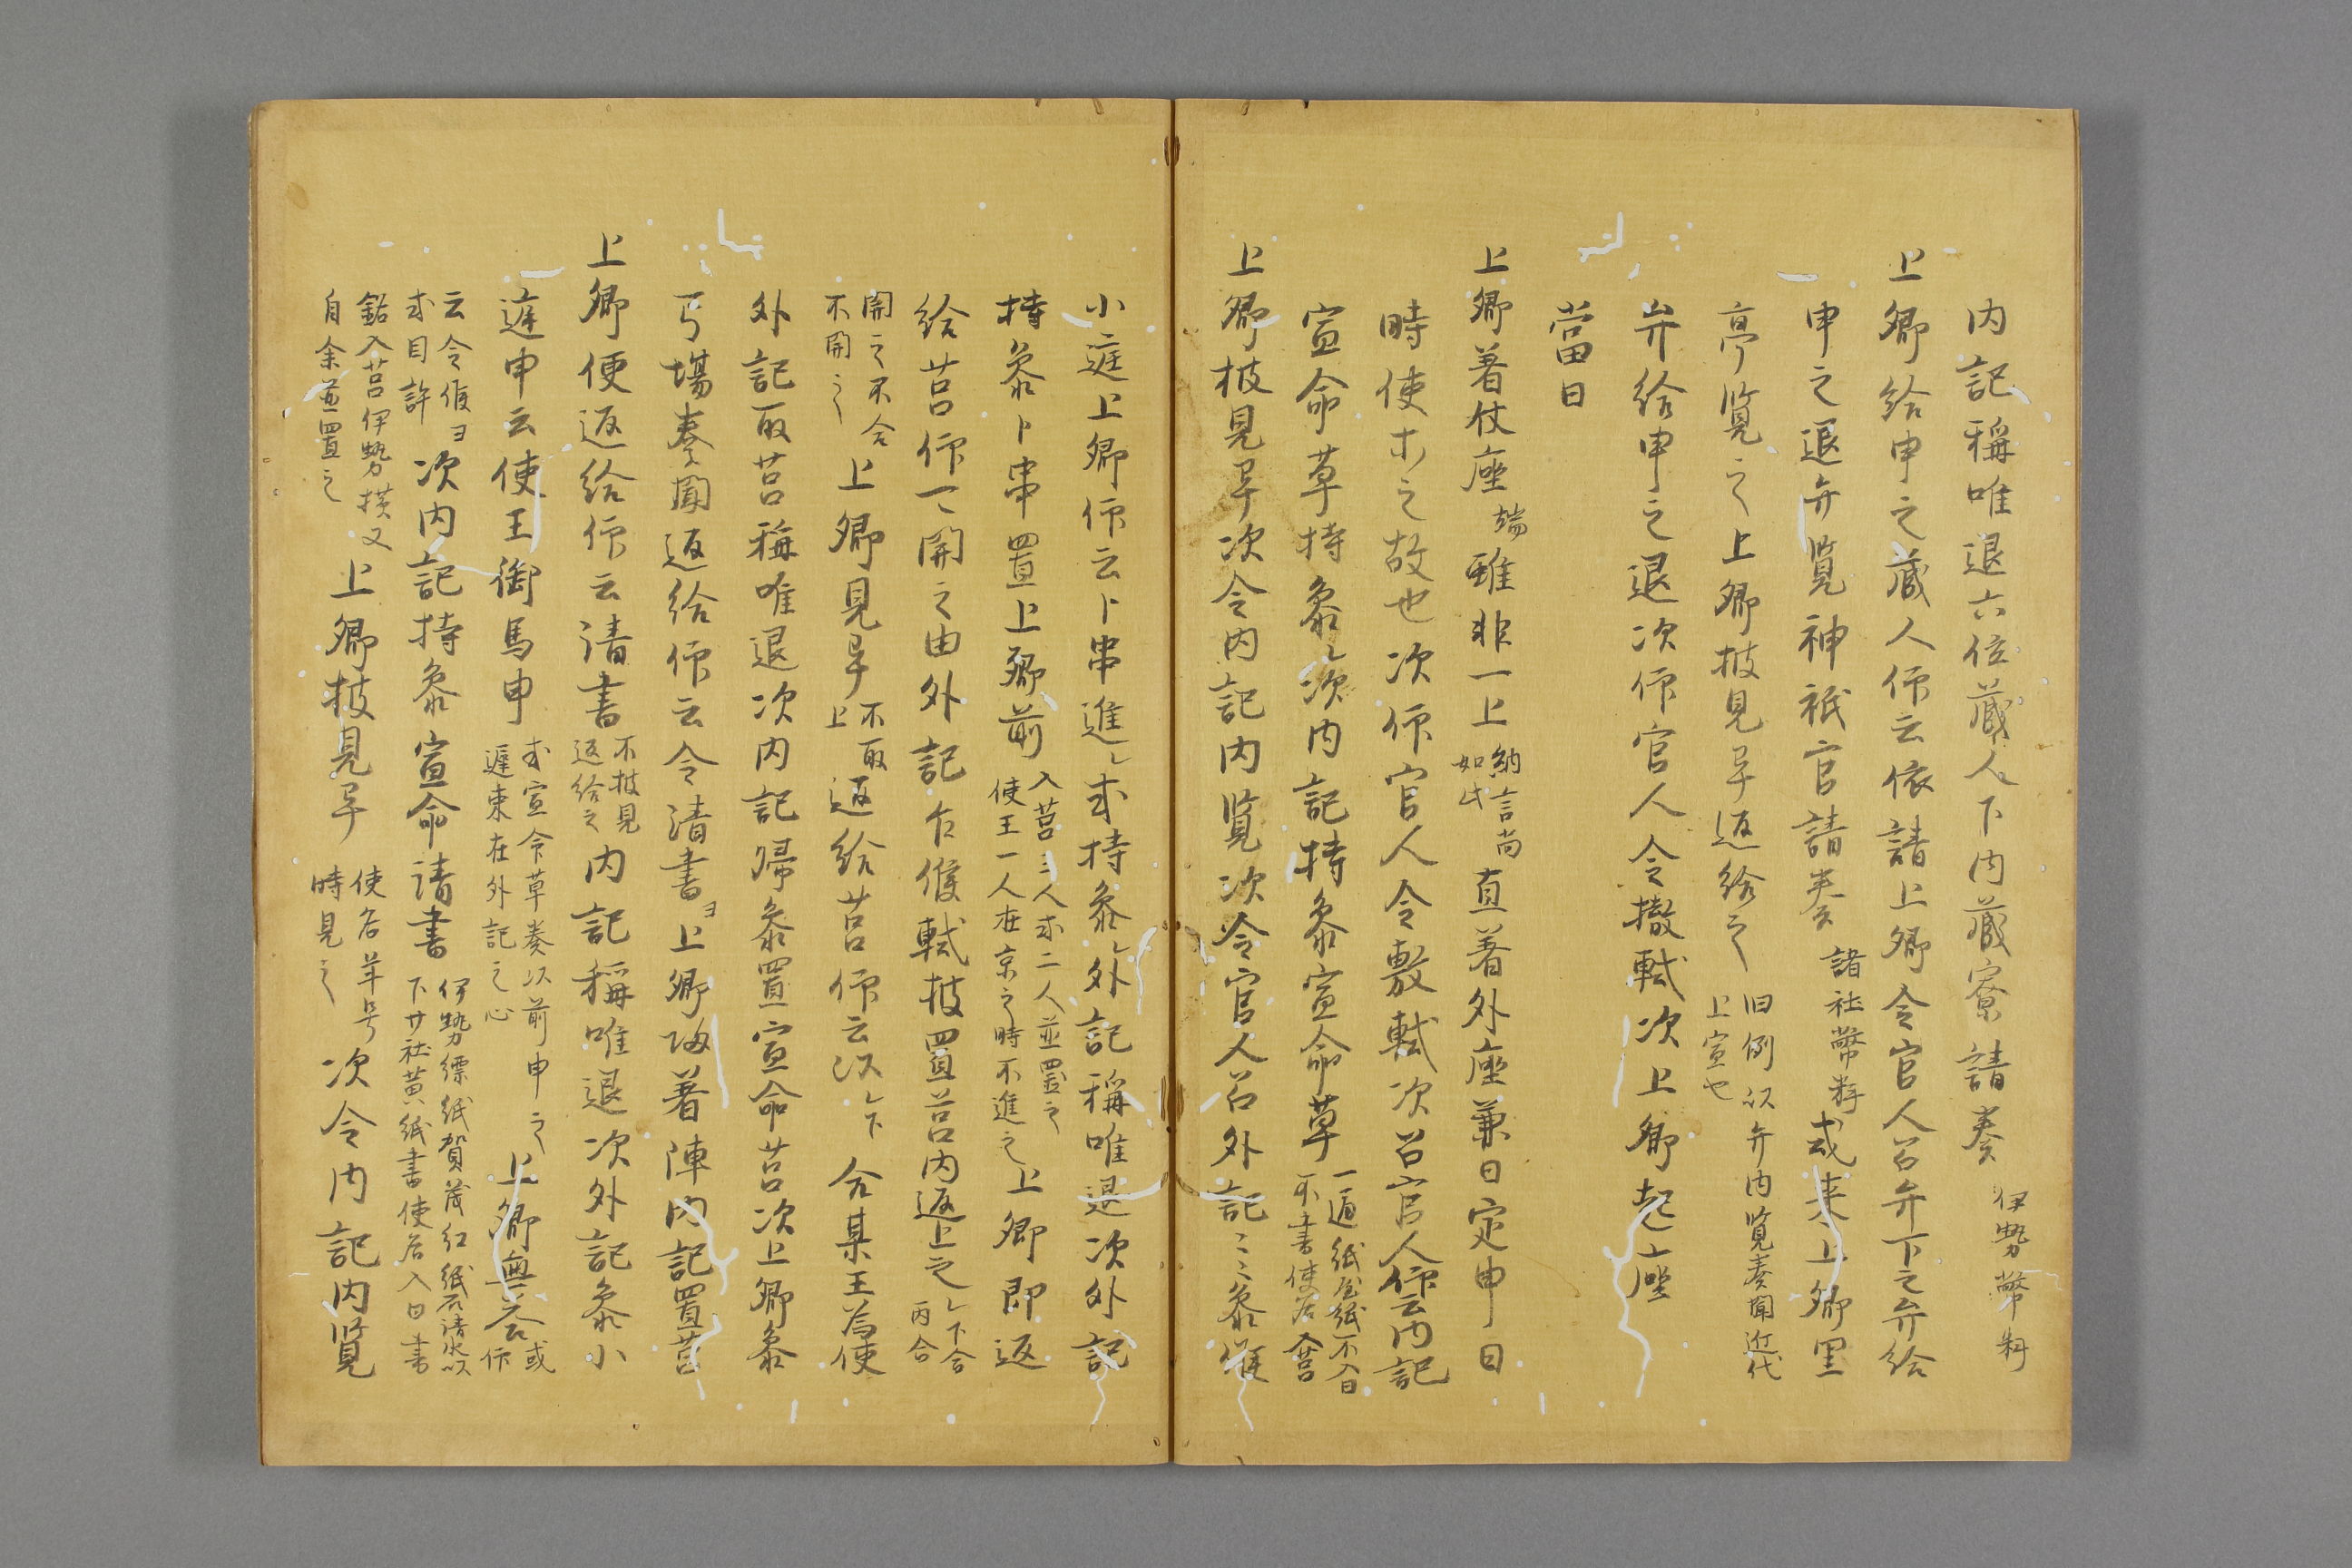 内記稱唯退六位蔵人下内蔵寮請奏伊勢幣料
上卿給申之蔵人仰云依請上卿令官人召弁下之弁給
申之退弁覧神祇官請奏諸社幣料或来上卿里
亭覧之上卿披見畢返給之旧例以弁内覧奏聞近代
上宣也
弁給申之退次仰官人令撤軾次上卿起座
當日
上卿着仗座端雖非一上納言尚
如此直着外座兼日定申日
時使木之故也次仰官人令敷軾次召官人仰云内記
宣命草持参次内記持参宣命草一通紙屋紙不入日
不書使名入筥
上卿披見畢次令内記内覧次令官人召外記ミミ参候
小庭上卿仰云卜串進レ或持参外記稱唯退次外記
持参卜串置上卿前入筥三人或二人並置之
使王一人在京之時不進之上卿即返
給筥仰可開之由外記乍候軾披置筥内返上之
開之不合
不開之上卿見畢不取
上返給筥仰云以下合某王為使
外記取筥稱唯退次内記帰参置宣命筥次上卿参
弓場奏聞返給仰云令清書ヨ上卿帰着陣内記置筥
上卿便返給仰云清書不披見
返給之内記稱唯退次外記参小
庭申云使王御馬申或宣命草奏以前申之
遅束在外記之心上卿無答或
仰
云令候ヨ
或目許次内記持参宣命清書伊勢縹紙賀茂紅紙石清水以
下廿社黄紙書使名入日書
銘入筥伊勢横又
自余並置之上卿披見畢使名年号
時見之次令内記内覧